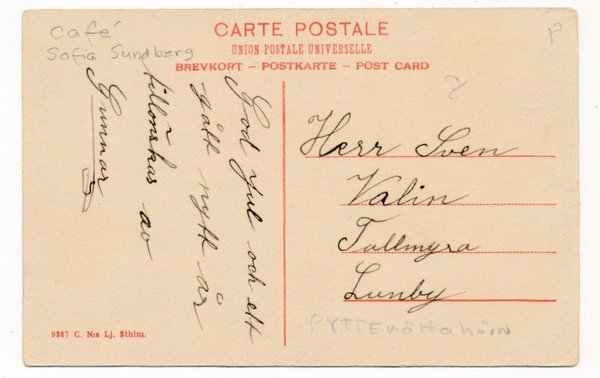 Café
Sofia Sundberg
CARTE POSTALE
UNION POSTALE UNIVERSELLE
BREVKORT – POSTKARTE – POST CARD
God Jul och ett
gått nytt år
tillönskas av
Gunnar
Herr Sven
Valin
Tallmyra
Lunby
9367 C. N:s Lj. Sthlm.